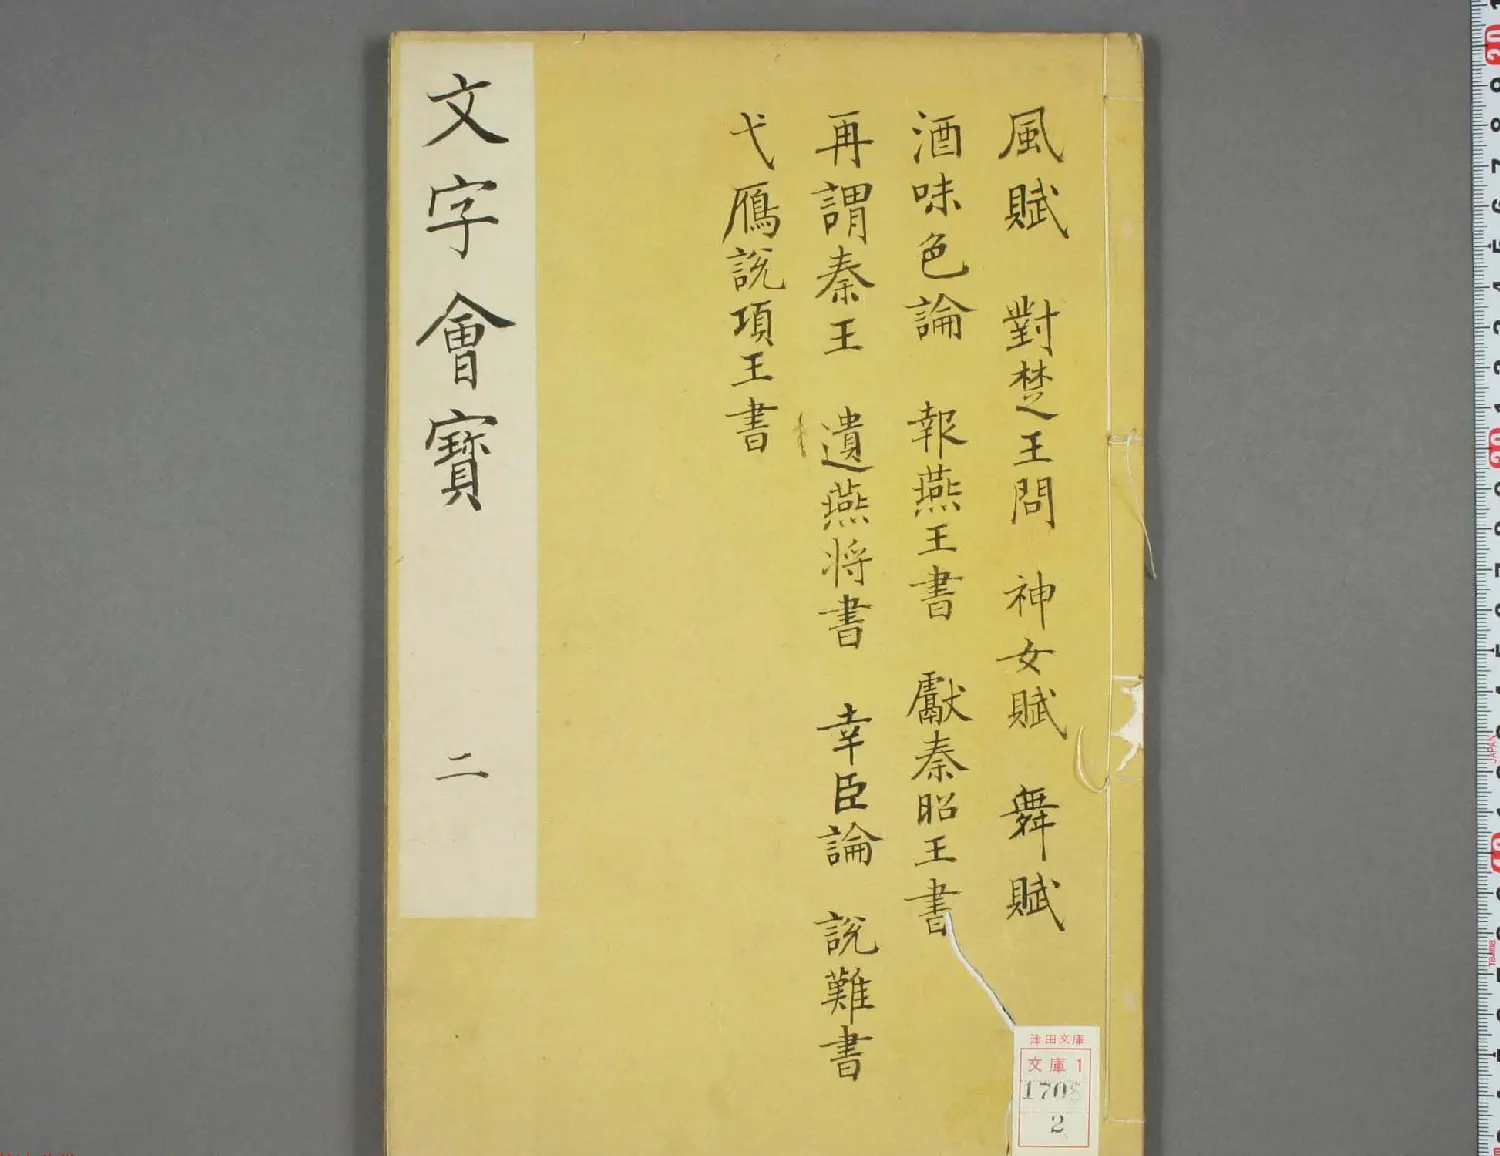 風賦　對楚王問　神女賦　舞賦
酒味色論　報燕王書　獻秦昭王書
再謂秦王　遺燕将書　幸臣論　說難書
弋鴈說項王書
文字會寶　二
津田文庫
文庫1
170
2